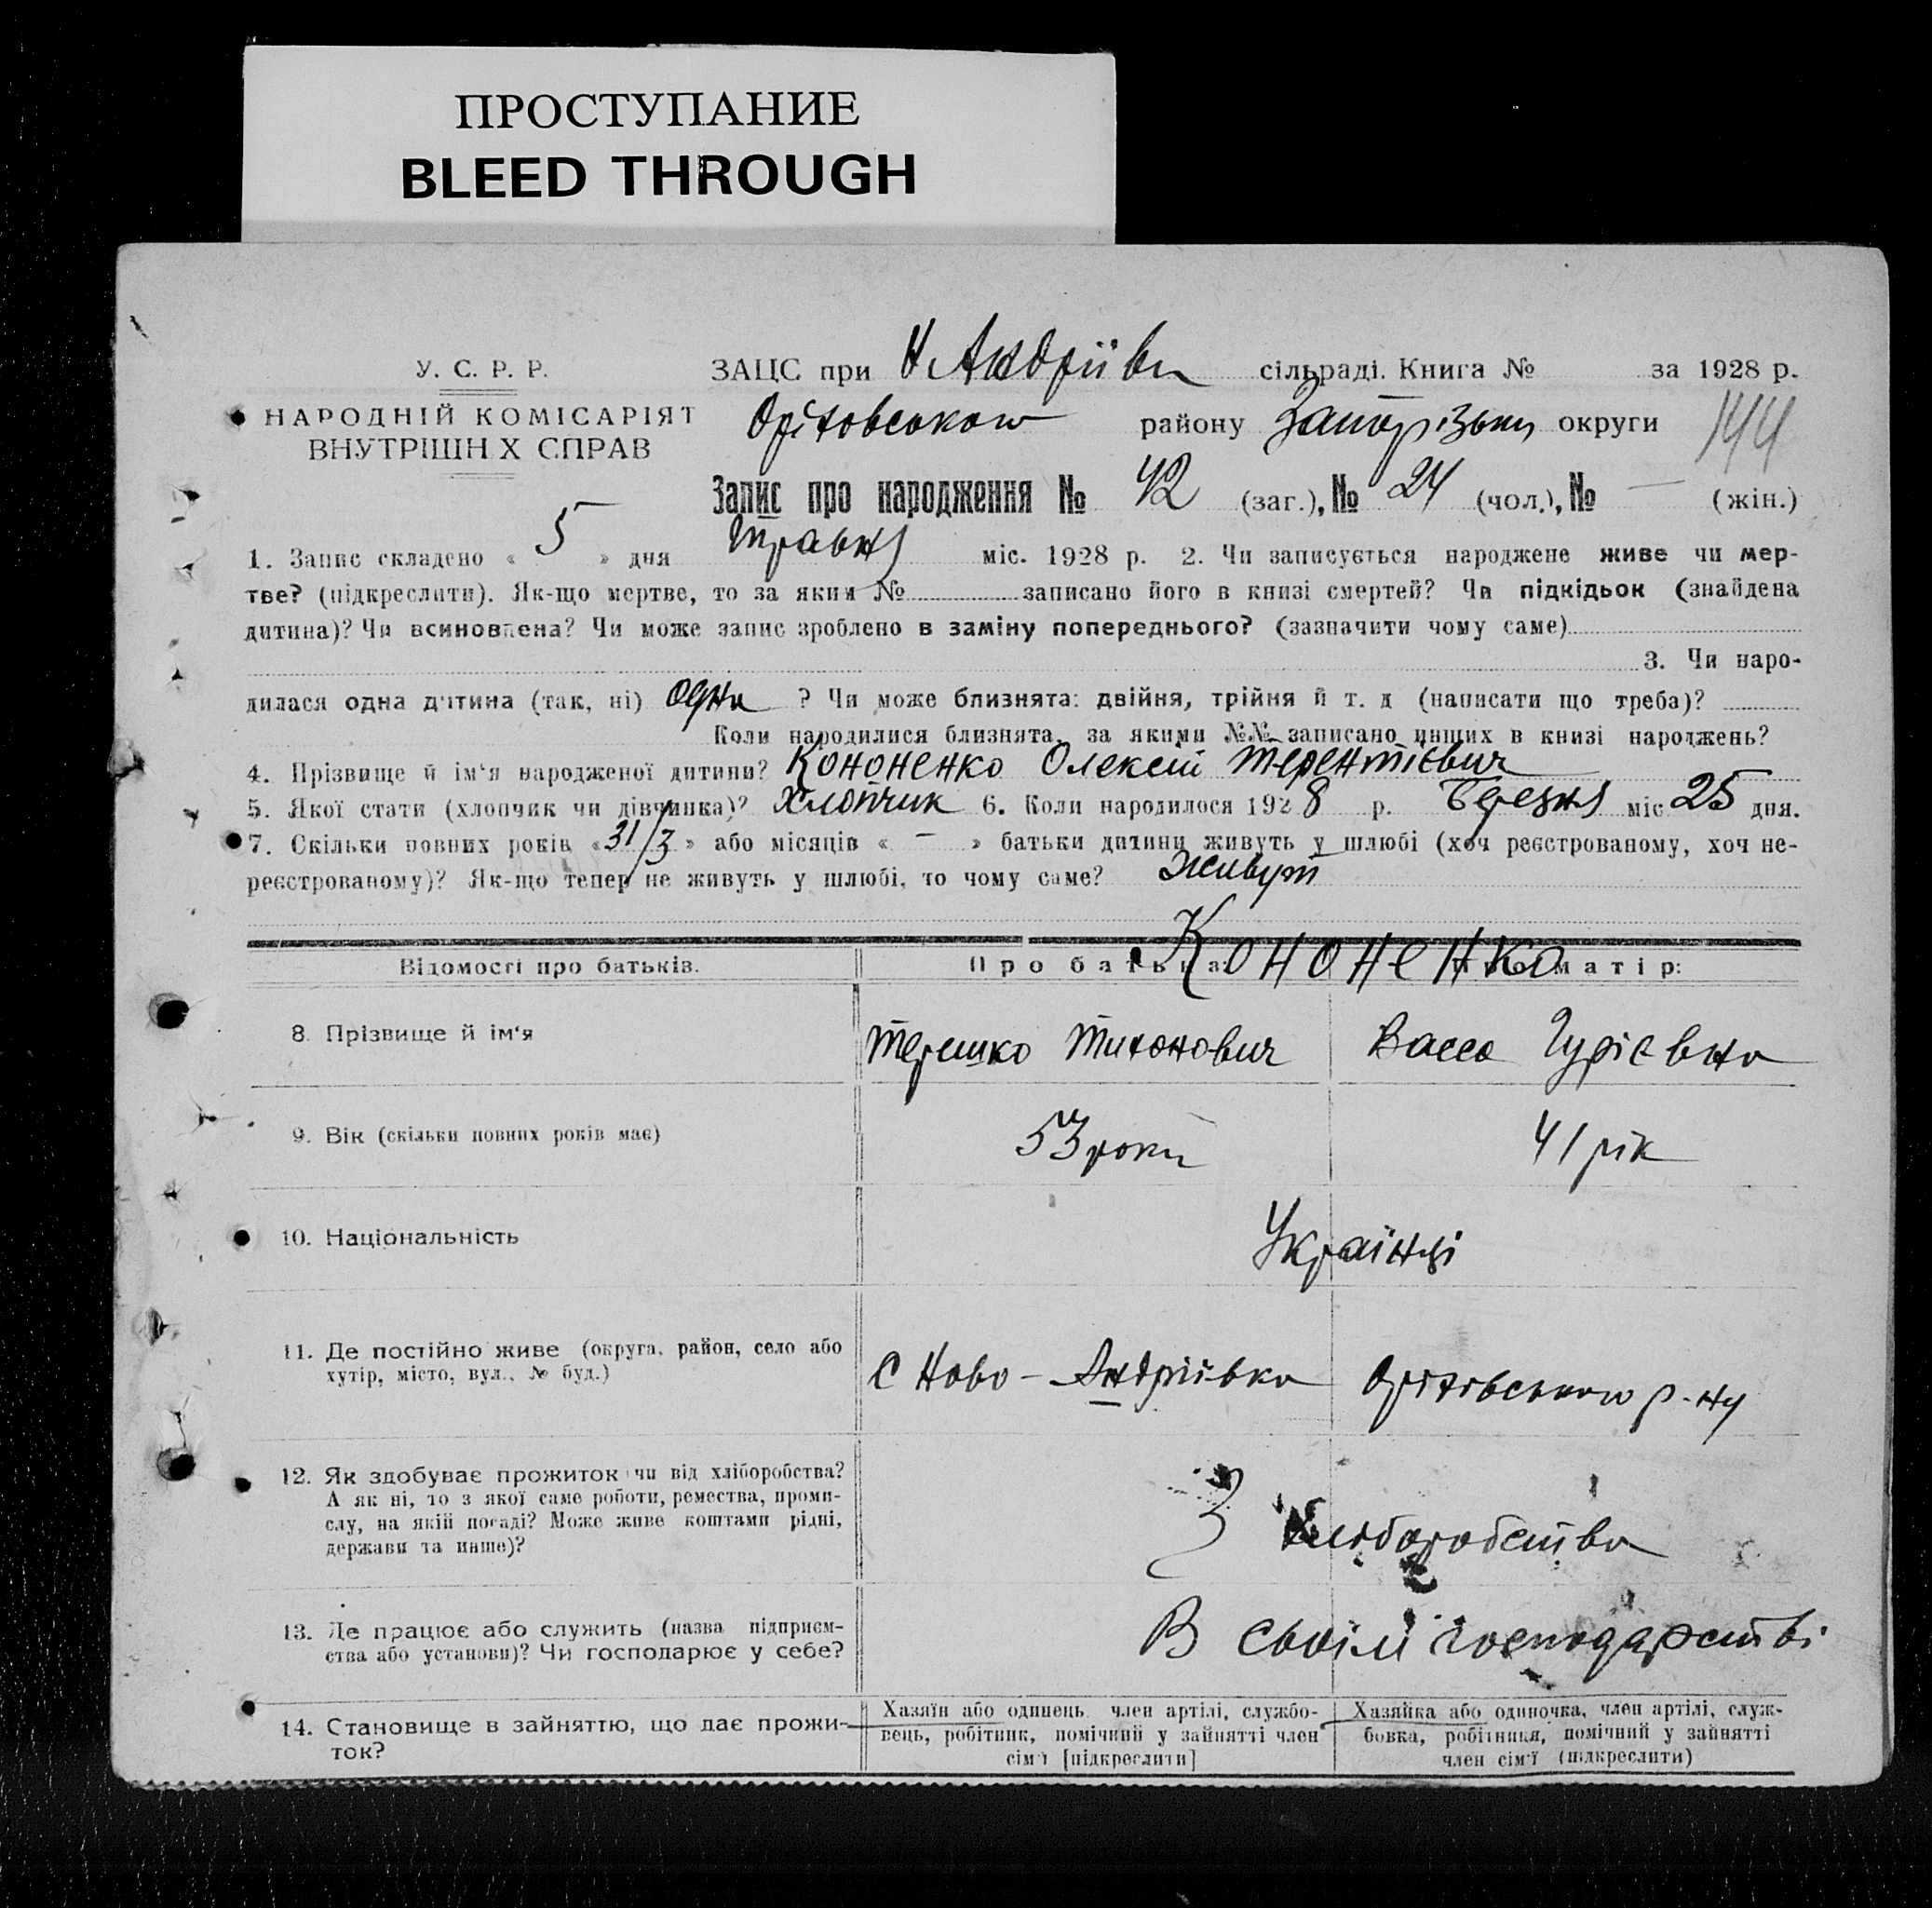 ПРОСТУПАНИЕ
BLEED THROUGH
У. С. Р. Р.
ЗАЦС при Н Андріївц сільраді. Книга № за 1928 р.
НАРОДНІЙ КОМІСАРІЯТ
ВНУТРІШН Х СПРАВ
Оріховського району Запорізьк округи 144
Запис про народження № 42 (заг.), № 24 (чол.), № — (жін.)
1. Запис складено « 5 » дня Травня міс. 1928 р. 2. Чи записується народжене живе чи мер-
тве? (підкреслити). Як-що мертве, то за яким № записано його в книзі смертей? Чи підкідьок (знайдена
дитина)? Чи всиновлена? Чи може запис зроблено в заміну попереднього? (зазначити чому саме)
3. Чи наро-
дилася одна дитина (так, ні) одна ? Чи може близнята: двійня, трійня й т. д (написати що треба)?
Коли народилися близнята, за якими №№ записано инших в книзі народжень?
4. Прізвище й ім'я народженої дитини? Кононенко Олексій Терентієвич
5. Якої стати (хлопчик чи дівчинка)? Хлопчик 6. Коли народилося 1928 р. Березня міс 25 дня.
7. Скільки повних років « 31/3 » або місяців « — » батьки дитини живуть у шлюбі (хоч реєстрованому, хоч не-
реєстрованому)? Як-що тепер не живуть у шлюбі, то чому саме? Живут
Кононенко
Відомості про батьків. Про батька: Про матір:
8. Прізвище й ім'я Терешко Тихонович Васса Гурієвна
9. Вік (скільки повних років має) 53 роки 41 рік
10. Національність Українці
11. Де постійно живе (округа, район, село або
хутір, місто, вул., № буд.)
С Ново - Андріївка Оріхівського р-ну
12. Як здобуває прожиток чи від хліборобства?
А як ні, то з якої саме роботи, ремества, проми-
слу, на якій посаді? Може живе коштами рідні,
держави та инше)?
З Хліборобства
13. Де працює або служить (назва підприєм-
ства або установи)? Чи господарює у себе?
В своїм господарстві
14. Становище в зайняттю, що дає прожи-
ток?
Хазяїн або одинець член артілі, службо-
вець, робітник, помічний у зайнятті член
сім'ї [підкреслити]
Хазяйка або одиночка, член артілі, служ-
бовка, робітниця, помічний у зайнятті
член сім'ї (підкреслити)